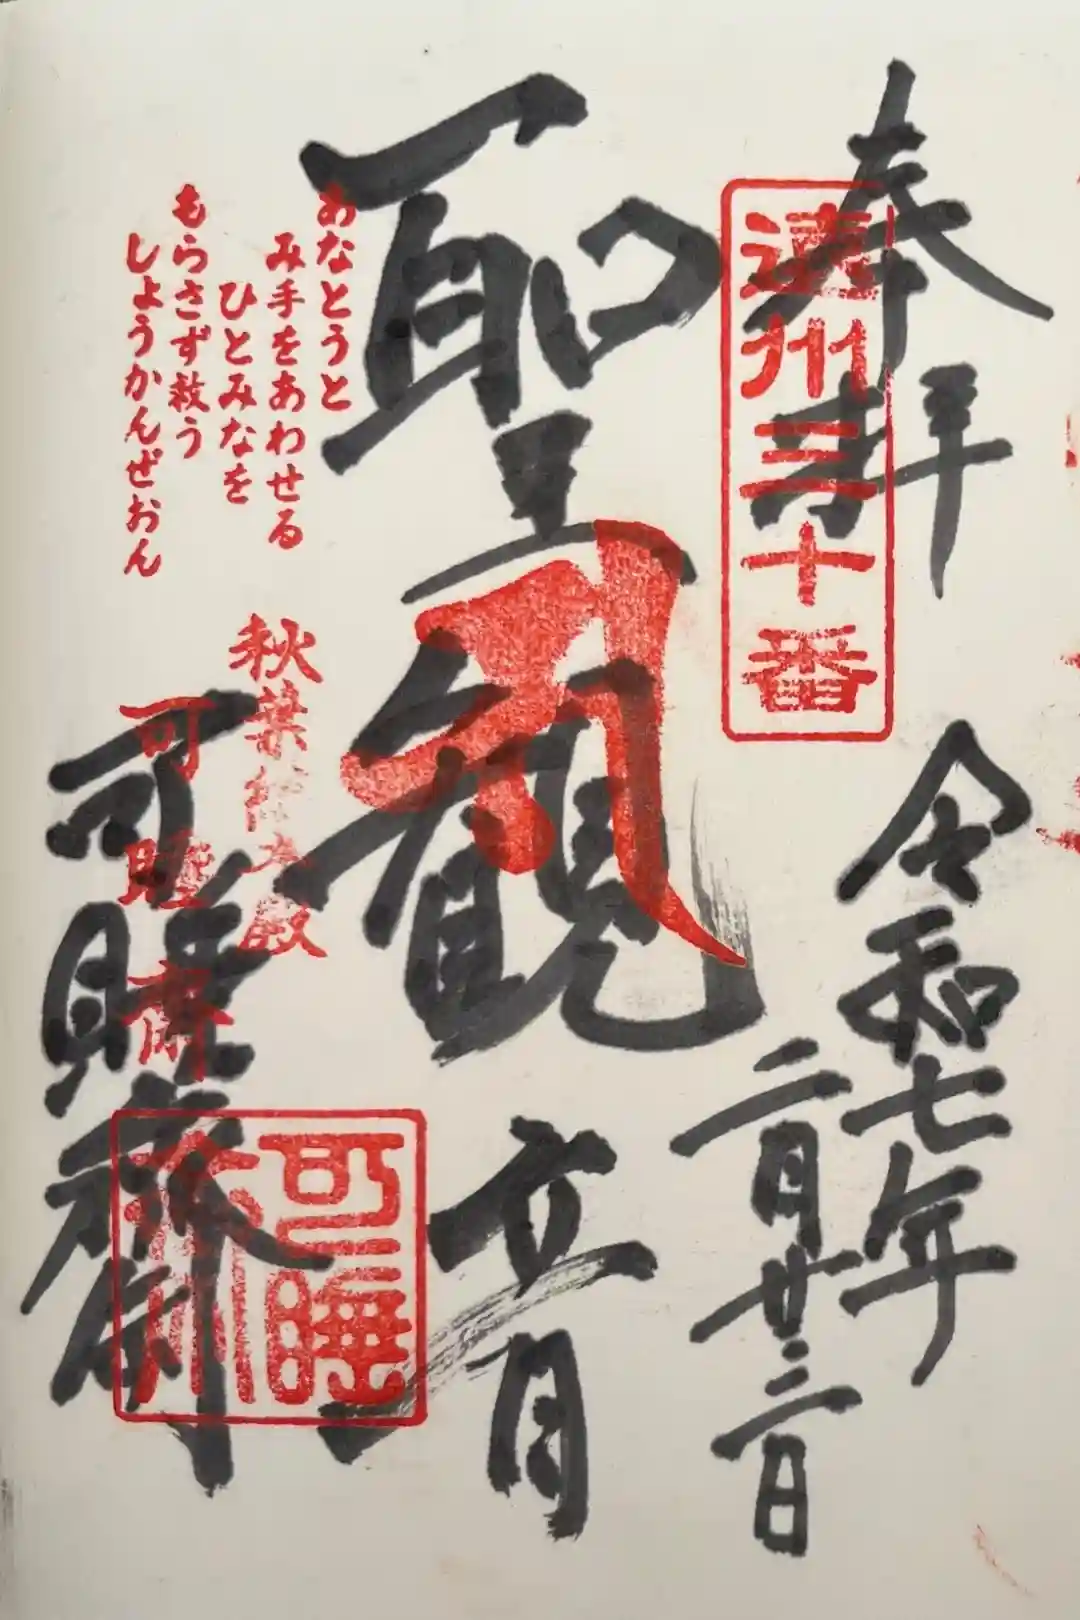 奉拝
遠州三十番
令和七年
二月廿三日
聖観
音
あなとうと
み手をあわせる
ひとみなを
もらさず救う
しょうかんぜおん
秋葉総本殿
可睡斎
可睡斎
可睡